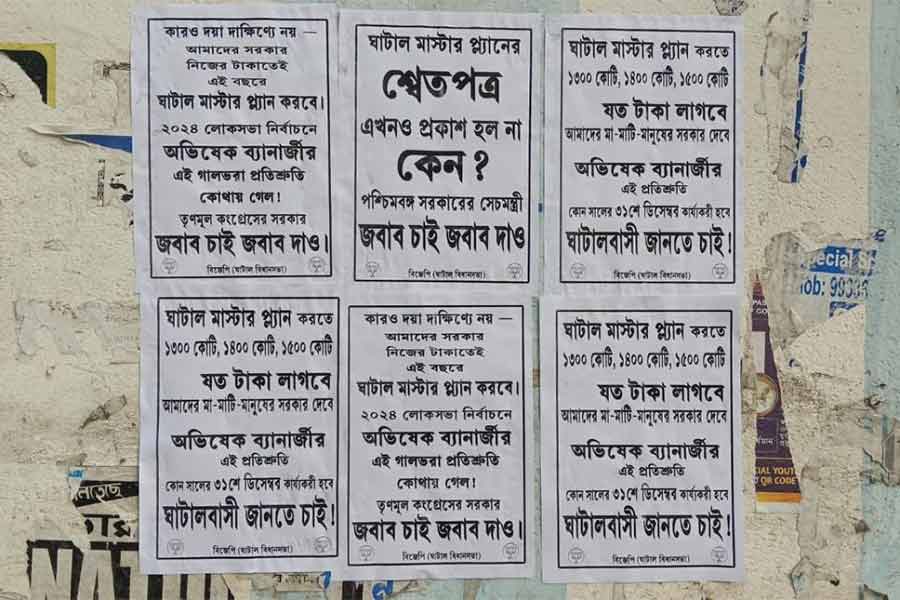 কারও দয়া দাক্ষিণ্যে নয় —
আমাদের সরকার
নিজের টাকাতেই
এই বছরে
ঘাটাল মাস্টার প্ল্যান করবে।
২০২৪ লোকসভা নির্বাচনে
অভিষেক ব্যানার্জীর
এই গালভরা প্রতিশ্রুতি
কোথায় গেল!
তৃণমূল কংগ্রেসের সরকার
জবাব চাই জবাব দাও।
বিজেপি (ঘাটাল বিধানসভা)
ঘাটাল মাস্টার প্ল্যানের
শ্বেতপত্র
এখনও প্রকাশ হল না
কেন ?
পশ্চিমবঙ্গ সরকারের সেচমন্ত্রী
জবাব চাই জবাব দাও
বিজেপি (ঘাটাল বিধানসভা)
ঘাটাল মাস্টার প্ল্যান করতে
১৩০০ কোটি, ১৪০০ কোটি, ১৫০০ কোটি
যত টাকা লাগবে
আমাদের মা-মাটি-মানুষের সরকার দেবে
অভিষেক ব্যানার্জীর
এই প্রতিশ্রুতি
কোন সালের ৩১শে ডিসেম্বর কার্য্যকরী হবে
ঘাটালবাসী জানতে চাই!
বিজেপি (ঘাটাল বিধানসভা)
pecial S
ob: 993
ঘাটাল মাস্টার প্ল্যান করতে
১৩০০ কোটি, ১৪০০ কোটি, ১৫০০ কোটি
যত টাকা লাগবে
আমাদের মা-মাটি-মানুষের সরকার দেবে
অভিষেক ব্যানার্জীর
এই প্রতিশ্রুতি
কোন সালের ৩১শে ডিসেম্বর কার্য্যকরী হবে
ঘাটালবাসী জানতে চাই!
বিজেপি (ঘাটাল বিধানসভা)
কারও দয়া দাক্ষিণ্যে নয় —
আমাদের সরকার
নিজের টাকাতেই
এই বছরে
ঘাটাল মাস্টার প্ল্যান করবে।
২০২৪ লোকসভা নির্বাচনে
অভিষেক ব্যানার্জীর
এই গালভরা প্রতিশ্রুতি
কোথায় গেল!
তৃণমূল কংগ্রেসের সরকার
জবাব চাই জবাব দাও।
বিজেপি (ঘাটাল বিধানসভা)
ঘাটাল মাস্টার প্ল্যান করতে
১৩০০ কোটি, ১৪০০ কোটি, ১৫০০ কোটি
যত টাকা লাগবে
আমাদের মা-মাটি-মানুষের সরকার দেবে
অভিষেক ব্যানার্জীর
এই প্রতিশ্রুতি
কোন সালের ৩১শে ডিসেম্বর কার্য্যকরী হবে
ঘাটালবাসী জানতে চাই!
বিজেপি (ঘাটাল বিধানসভা)
CIAL YOUT
QR CODE
NATI